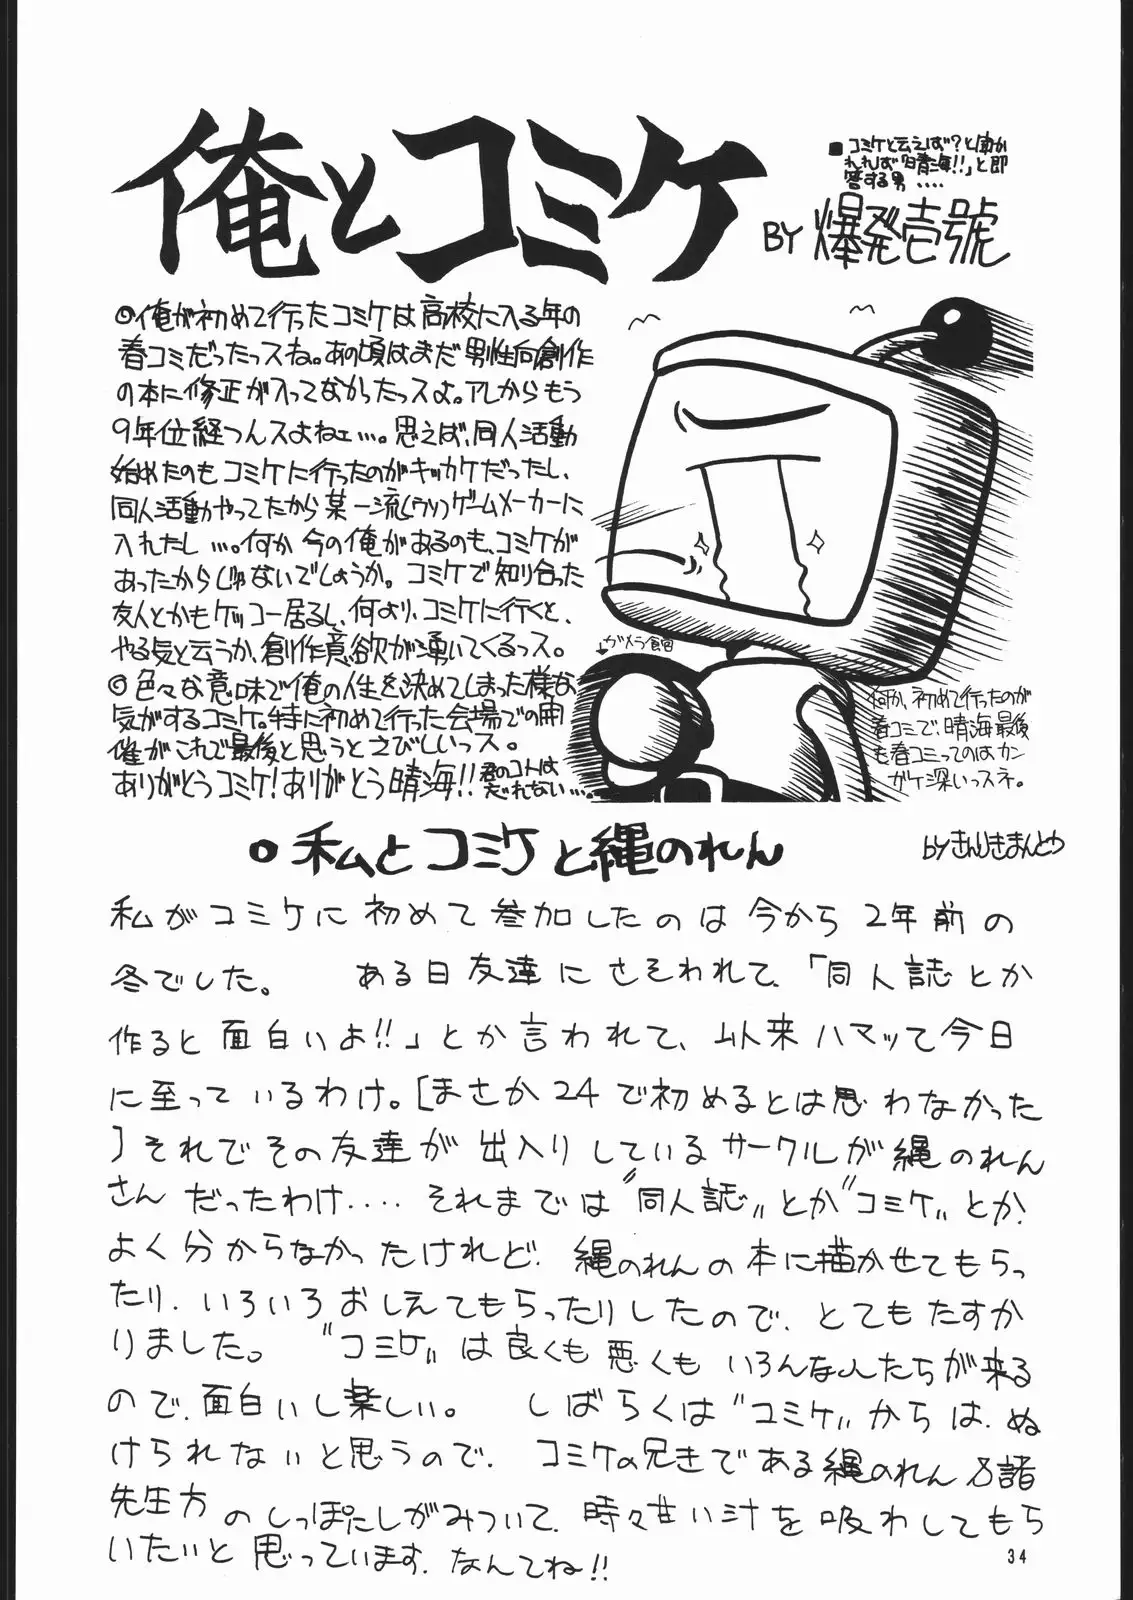 俺とコミケ
■コミケと云えば?と聞か
れれば「晴海!!」と即
答する男....
BY 爆発壱號
◎俺が初めて行ったコミケは高校に入る年の
春コミだったっスね。あの頃はまだ男性向創作
の本に修正が入ってなかったっスよ。アレからもう
9年位経つんスよねェ…。思えば、同人活動
始めたのもコミケに行ったのがキッカケだったし、
同人活動やってたから某一流(ウソ)ゲームメーカーに
入れたし…。何か今の俺があるのも、コミケが
あったからじゃないでしょうか。コミケで知り合った
友人とかもケッコー居るし、何より、コミケに行くと、
やる気と云うか、創作意欲が湧いてくるっス。
◎色々な意味で俺の人生を決めてしまった様な
気がするコミケ。特に初めて行った会場での開
催がこれで最後と思うとさびしいっス。
ありがとうコミケ!ありがとう晴海!!君のコトは忘れない…。
ガメラ貪
何か、初めて行ったのが
春コミで、晴海最後
も春コミってのはカン
ガケ深いっスネ。
○私とコミケと縄のれん
byきんりきまんとや
私がコミケに初めて参加したのは今から2年前の
冬でした。 ある日友達にさそわれて、「同人誌とか
作ると面白いよ!!」とか言われて、以来ハマッて今日
に至っているわけ。[まさか24で初めるとは思わなかった
]それでその友達が出入りしているサークルが縄のれん
さんだったわけ.... それまでは〝同人誌〟とか〝コミケ〟とか、
よく分からなかったけれど、縄のれんの本に描かせてもらっ
たり、いろいろおしえてもらったりしたので、とてもたすか
りました。 〝コミケ〟は良くも悪くもいろんな人たちが来る
ので、面白いし楽しい。 しばらくは〝コミケ〟からは、ぬ
けられないと思うので、コミケの兄きである縄のれん&諸
先生方のしっぽにしがみついて、時々甘い汁を吸わしてもら
いたいと思っています。なんてね!!
34